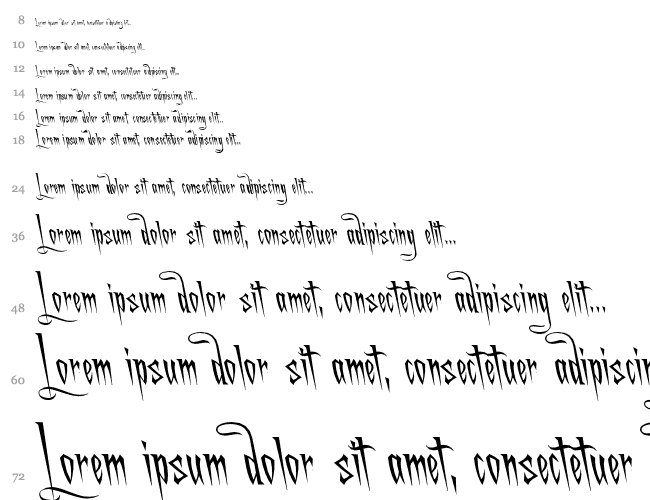 8 Lorem ipsum dolor sit amet, consectetuer adipiscing elit...
10 Lorem ipsum dolor sit amet, consectetuer adipiscing elit...
12 Lorem ipsum dolor sit amet, consectetuer adipiscing elit...
14 Lorem ipsum dolor sit amet, consectetuer adipiscing elit...
16 Lorem ipsum dolor sit amet, consectetuer adipiscing elit...
18 Lorem ipsum dolor sit amet, consectetuer adipiscing elit...
24 Lorem ipsum dolor sit amet, consectetuer adipiscing elit...
36 Lorem ipsum dolor sit amet, consectetuer adipiscing elit...
48 Lorem ipsum dolor sit amet, consectetuer adipiscing elit...
60 Lorem ipsum dolor sit amet, consectetuer adipiscin
72 Lorem ipsum dolor sit amet, consectetuer